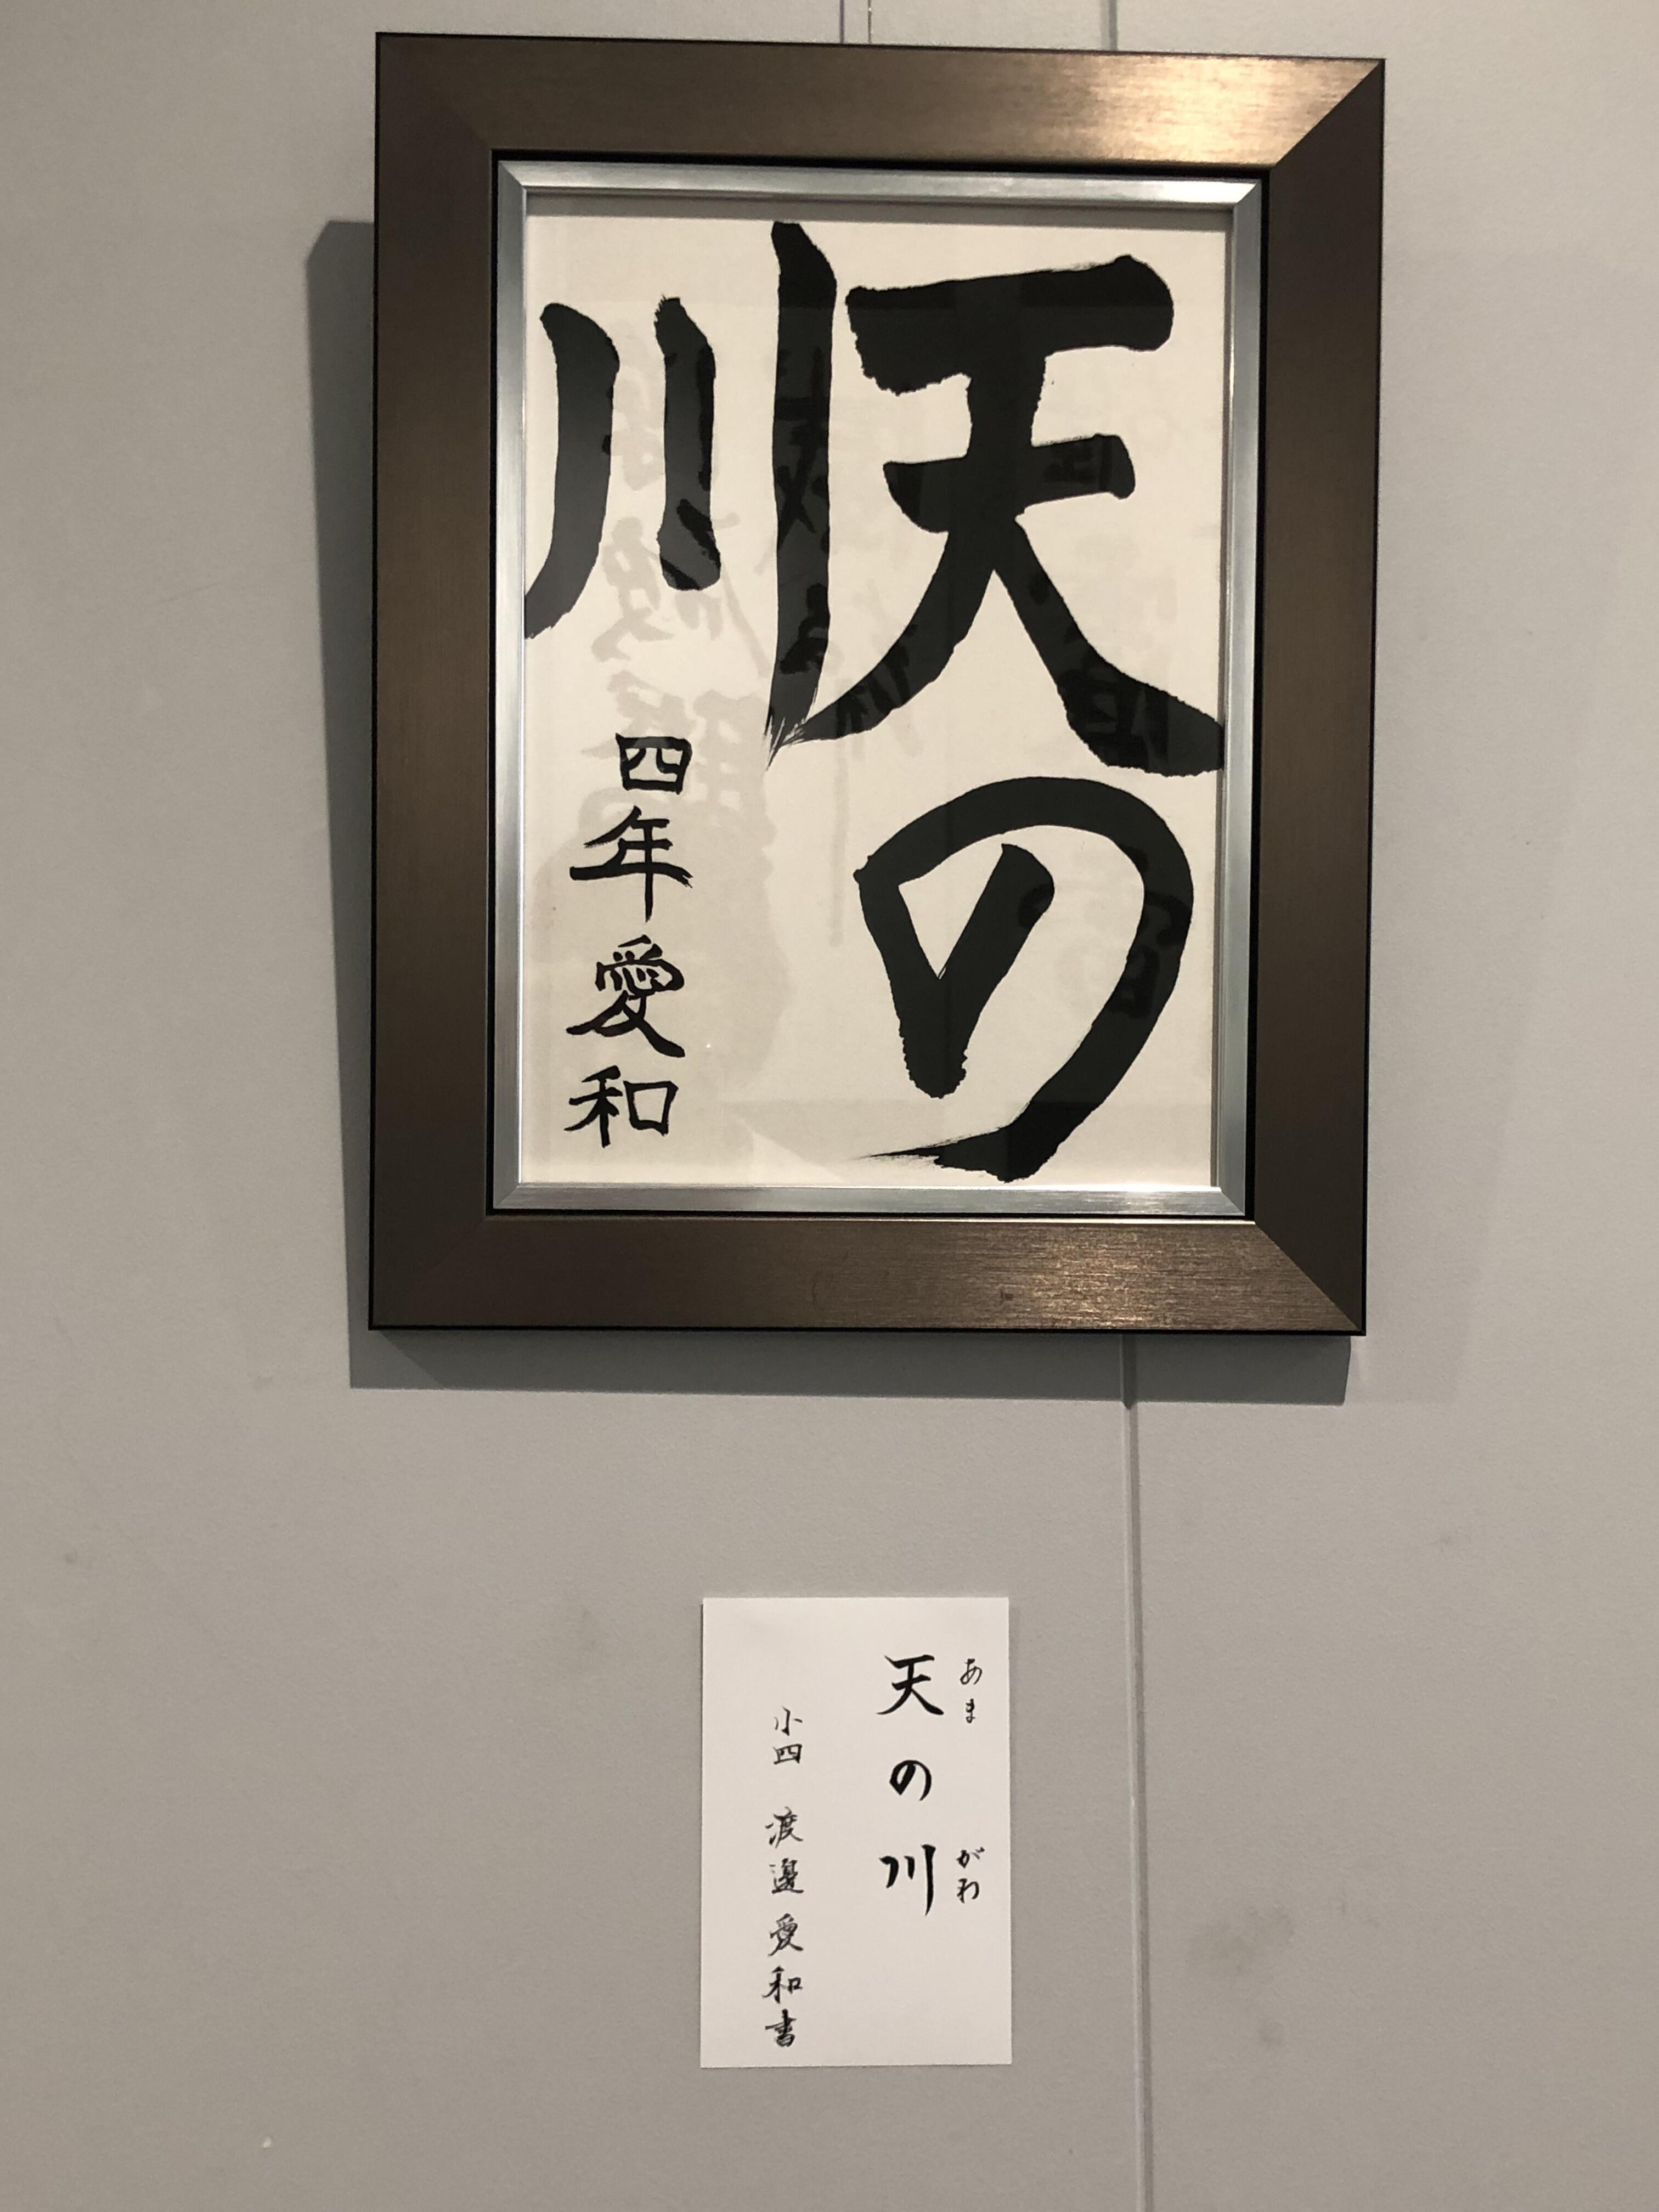 天の
川
四年愛和
あま がわ
天の川
小四 渡邊愛和書